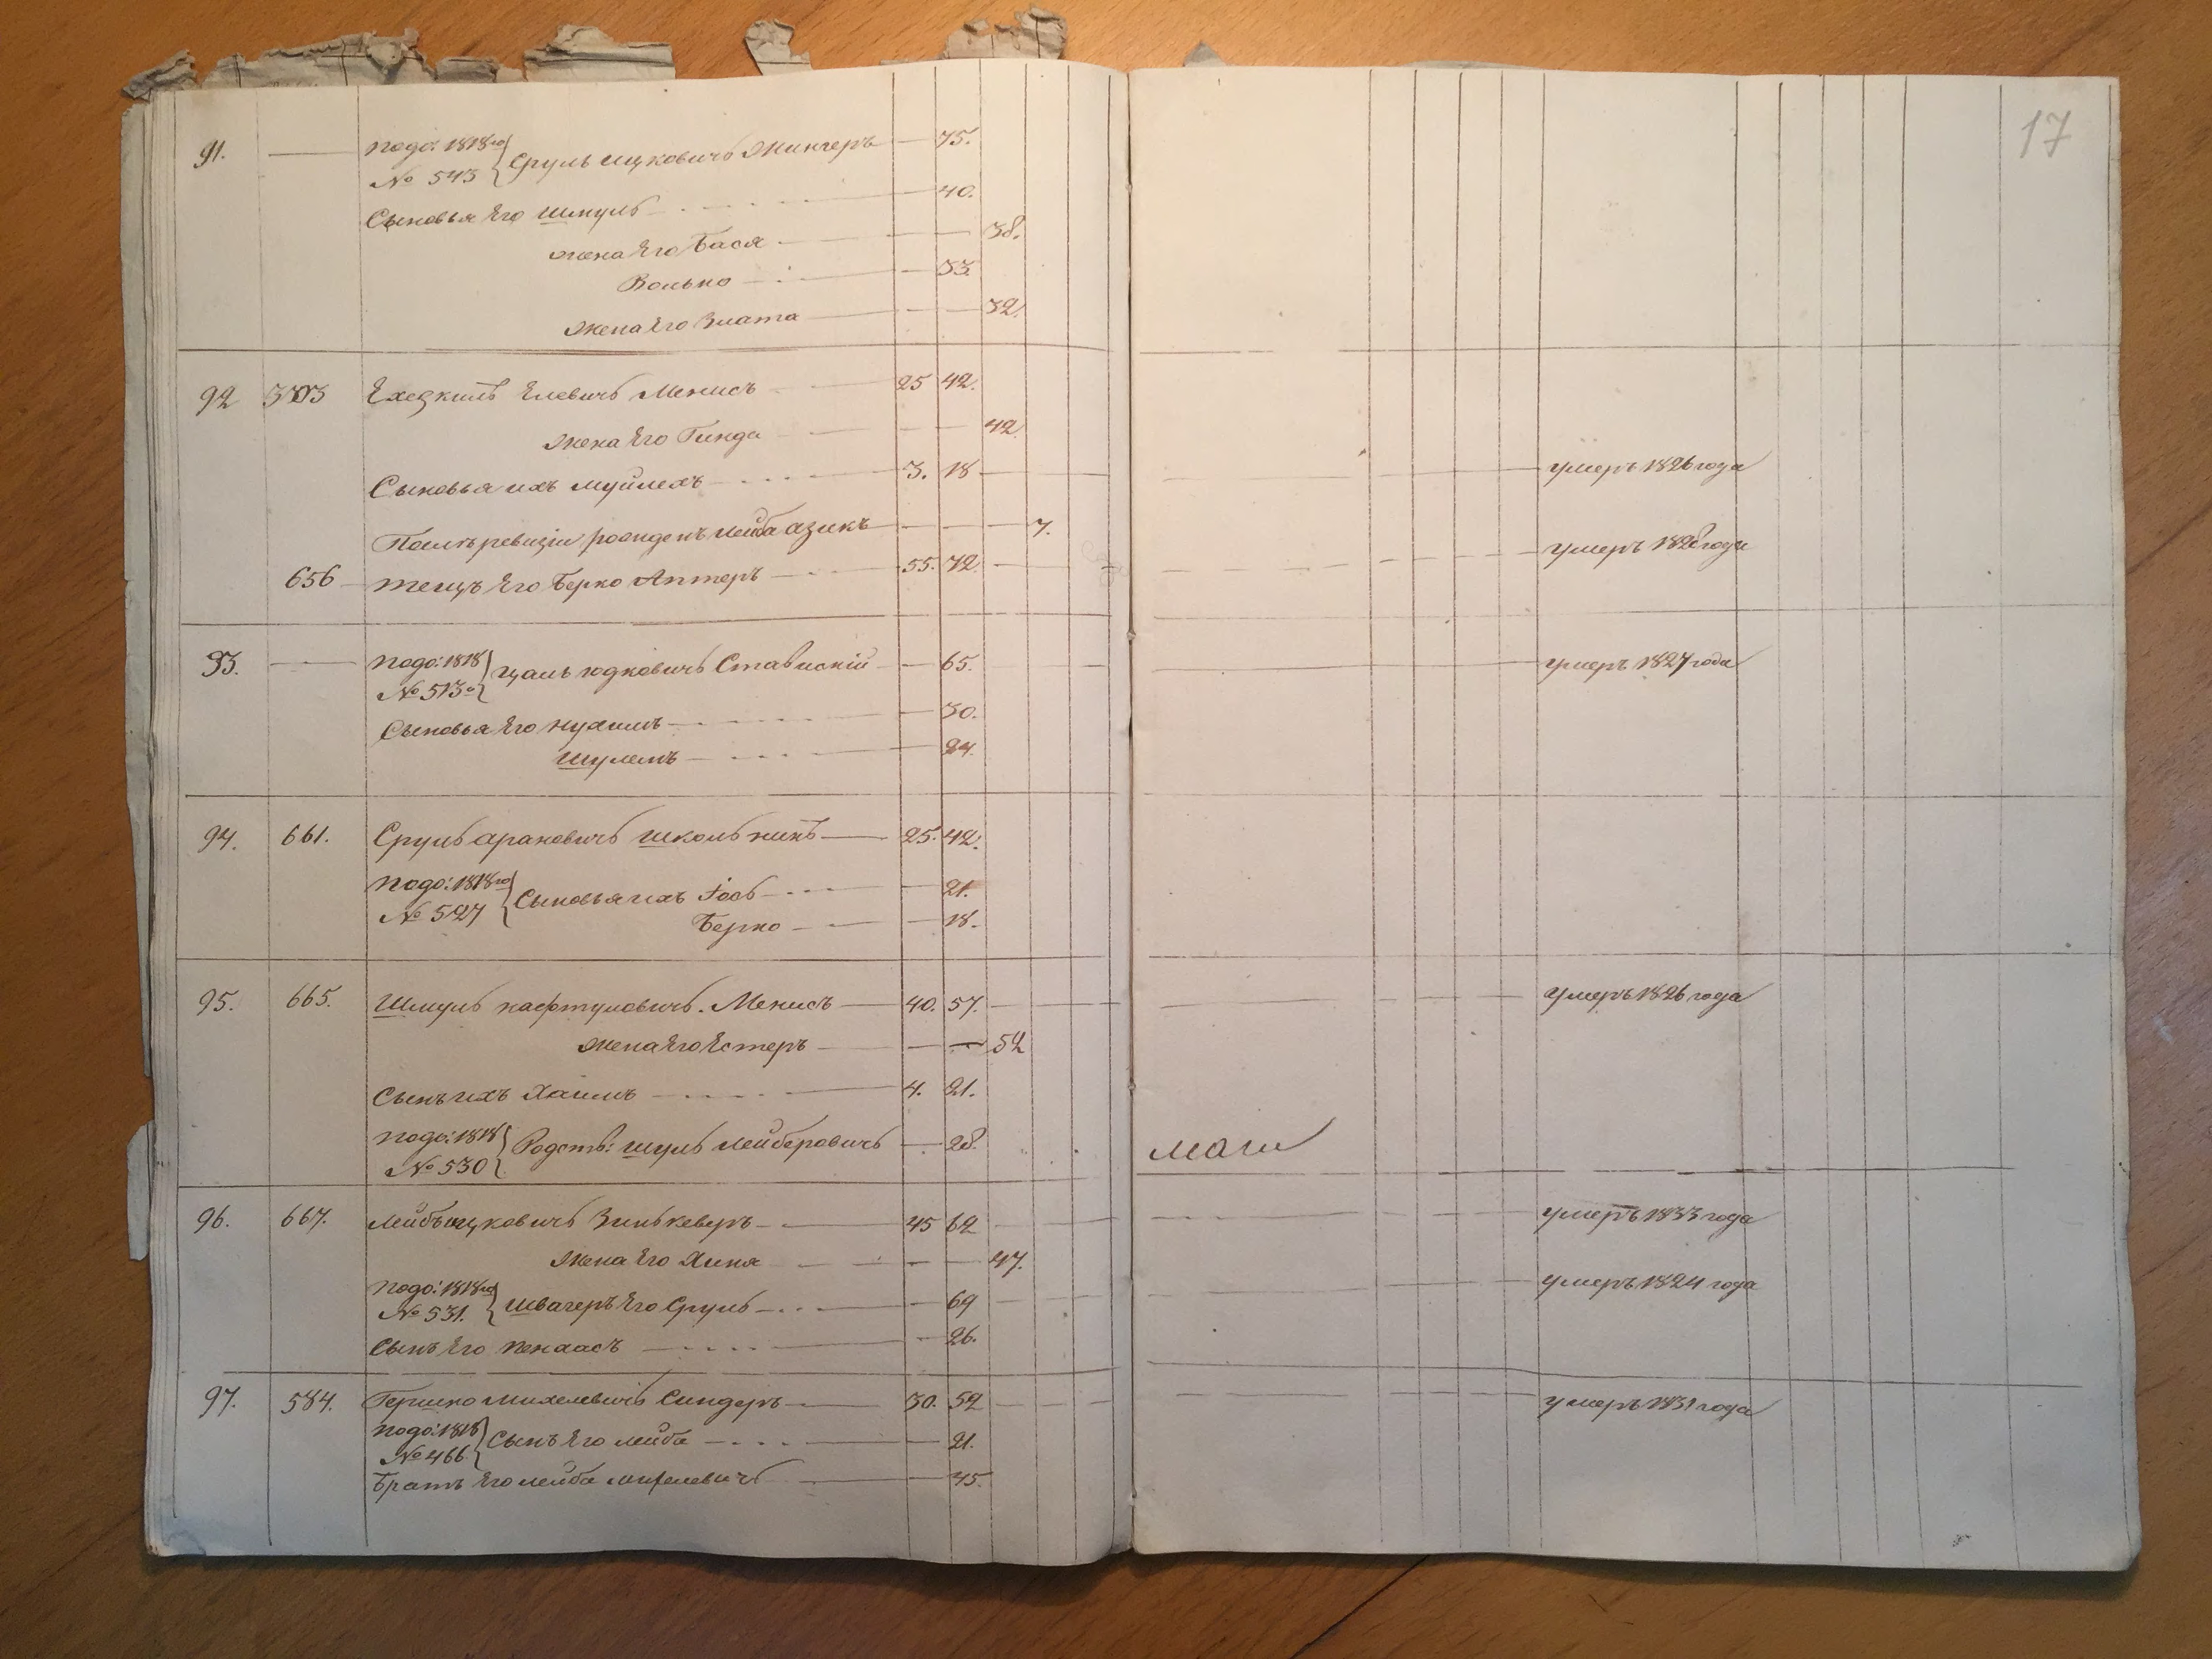 17
91. подо: 1818го Сруль Ицковичъ Жингеръ 75.
№ 543
Сыновья Его Шмуль 40.
жена Его Бася 38.
Волько 33.
Жена Его Злата 32.
92 Ехезкиль Елевичъ Менисъ 25 42.
Жена Его Гинда 42.
Сыновья ихъ Муйлехъ 3. 18 умеръ 1826 года
Послѣ ревизіи рожденъ Лейба Азикъ 7.
656 тещъ Его Берко Аптеръ 55. 72. умеръ 1826 года
93. подо: 1818 Цаль Юдковичъ Ставискій 65. умеръ 1827 года
№ 513
Сыновья Его Нухимъ 30.
Шулемъ 24.
94. 661. Сруль Ароновичъ Школьникъ 25. 42.
подо: 1818го Сыновья ихъ Іось 21.
№ 527
Берко 18.
95. 665. Шмуль Нафтуловичъ Менисъ 40. 57. умеръ 1826 года
жена Его Естеръ 52
Сынъ ихъ Хаимъ 4. 21.
подо: 1818 Родств: Шуль Лейберовичъ 28.
№ 530
96. 667. Лейбъ Ицковичъ Зинькеверъ 45 62 умеръ 1833 года
Жена Его Хина 47.
подо: 1818го Швагеръ Его Сруль 69 умеръ 1824 года
№ 531.
Сынъ Его Пенаасъ 26.
97. 584. Гершко Михелевичъ Синдеръ 30. 52 умеръ 1831 года
подо: 1818 Сынъ Его Лейба 21.
№ 466
Братъ Его Лейба Михелевичъ 45.